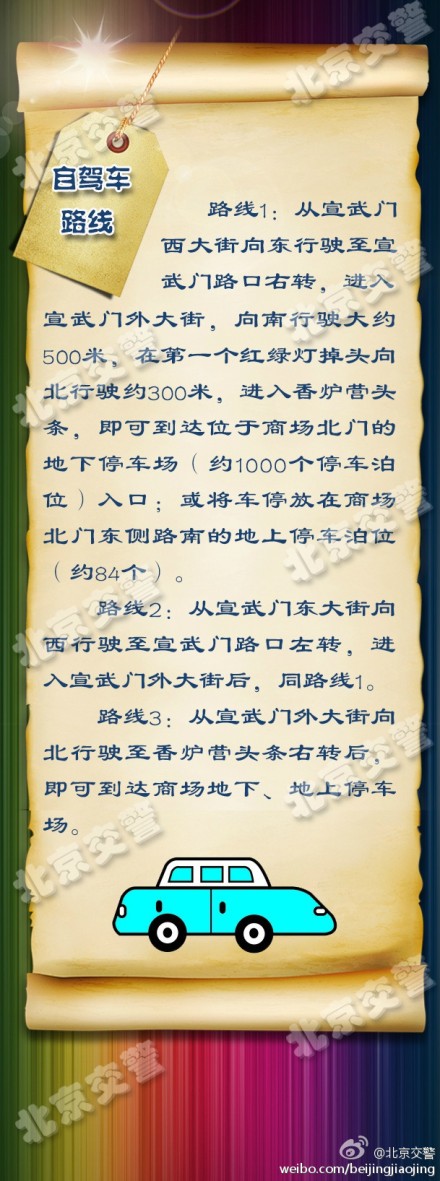 自驾车
路线
路线1：从宣武门
西大街向东行驶至宣
武门路口右转，进入
宣武门外大街，向南行驶大约
500米，在第一个红绿灯掉头向
北行驶约300米，进入香炉营头
条，即可到达位于商场北门的
地下停车场（约1000个停车泊
位）入口；或将车停放在商场
北门东侧路南的地上停车泊位
（约84个）。
路线2：从宣武门东大街向
西行驶至宣武门路口左转，进
入宣武门外大街后，同路线1。
路线3：从宣武门外大街向
北行驶至香炉营头条右转后，
即可到达商场地下、地上停车
场。
北京交警
北京交警
北京交警
北京交警
北京交警
北京交警
北京交警
北京交警
北京交警
北京交警
@北京交警
weibo.com/beijingjiaojing